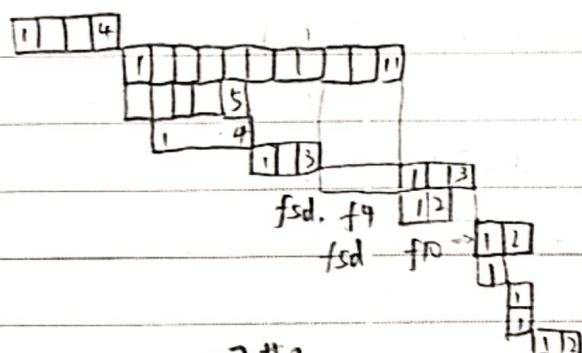 1 4
1 1 11
5
1 4
1 3
1 3
fsd. f9 1 2
fsd f10 -> 1 2
1
1
1
1 2